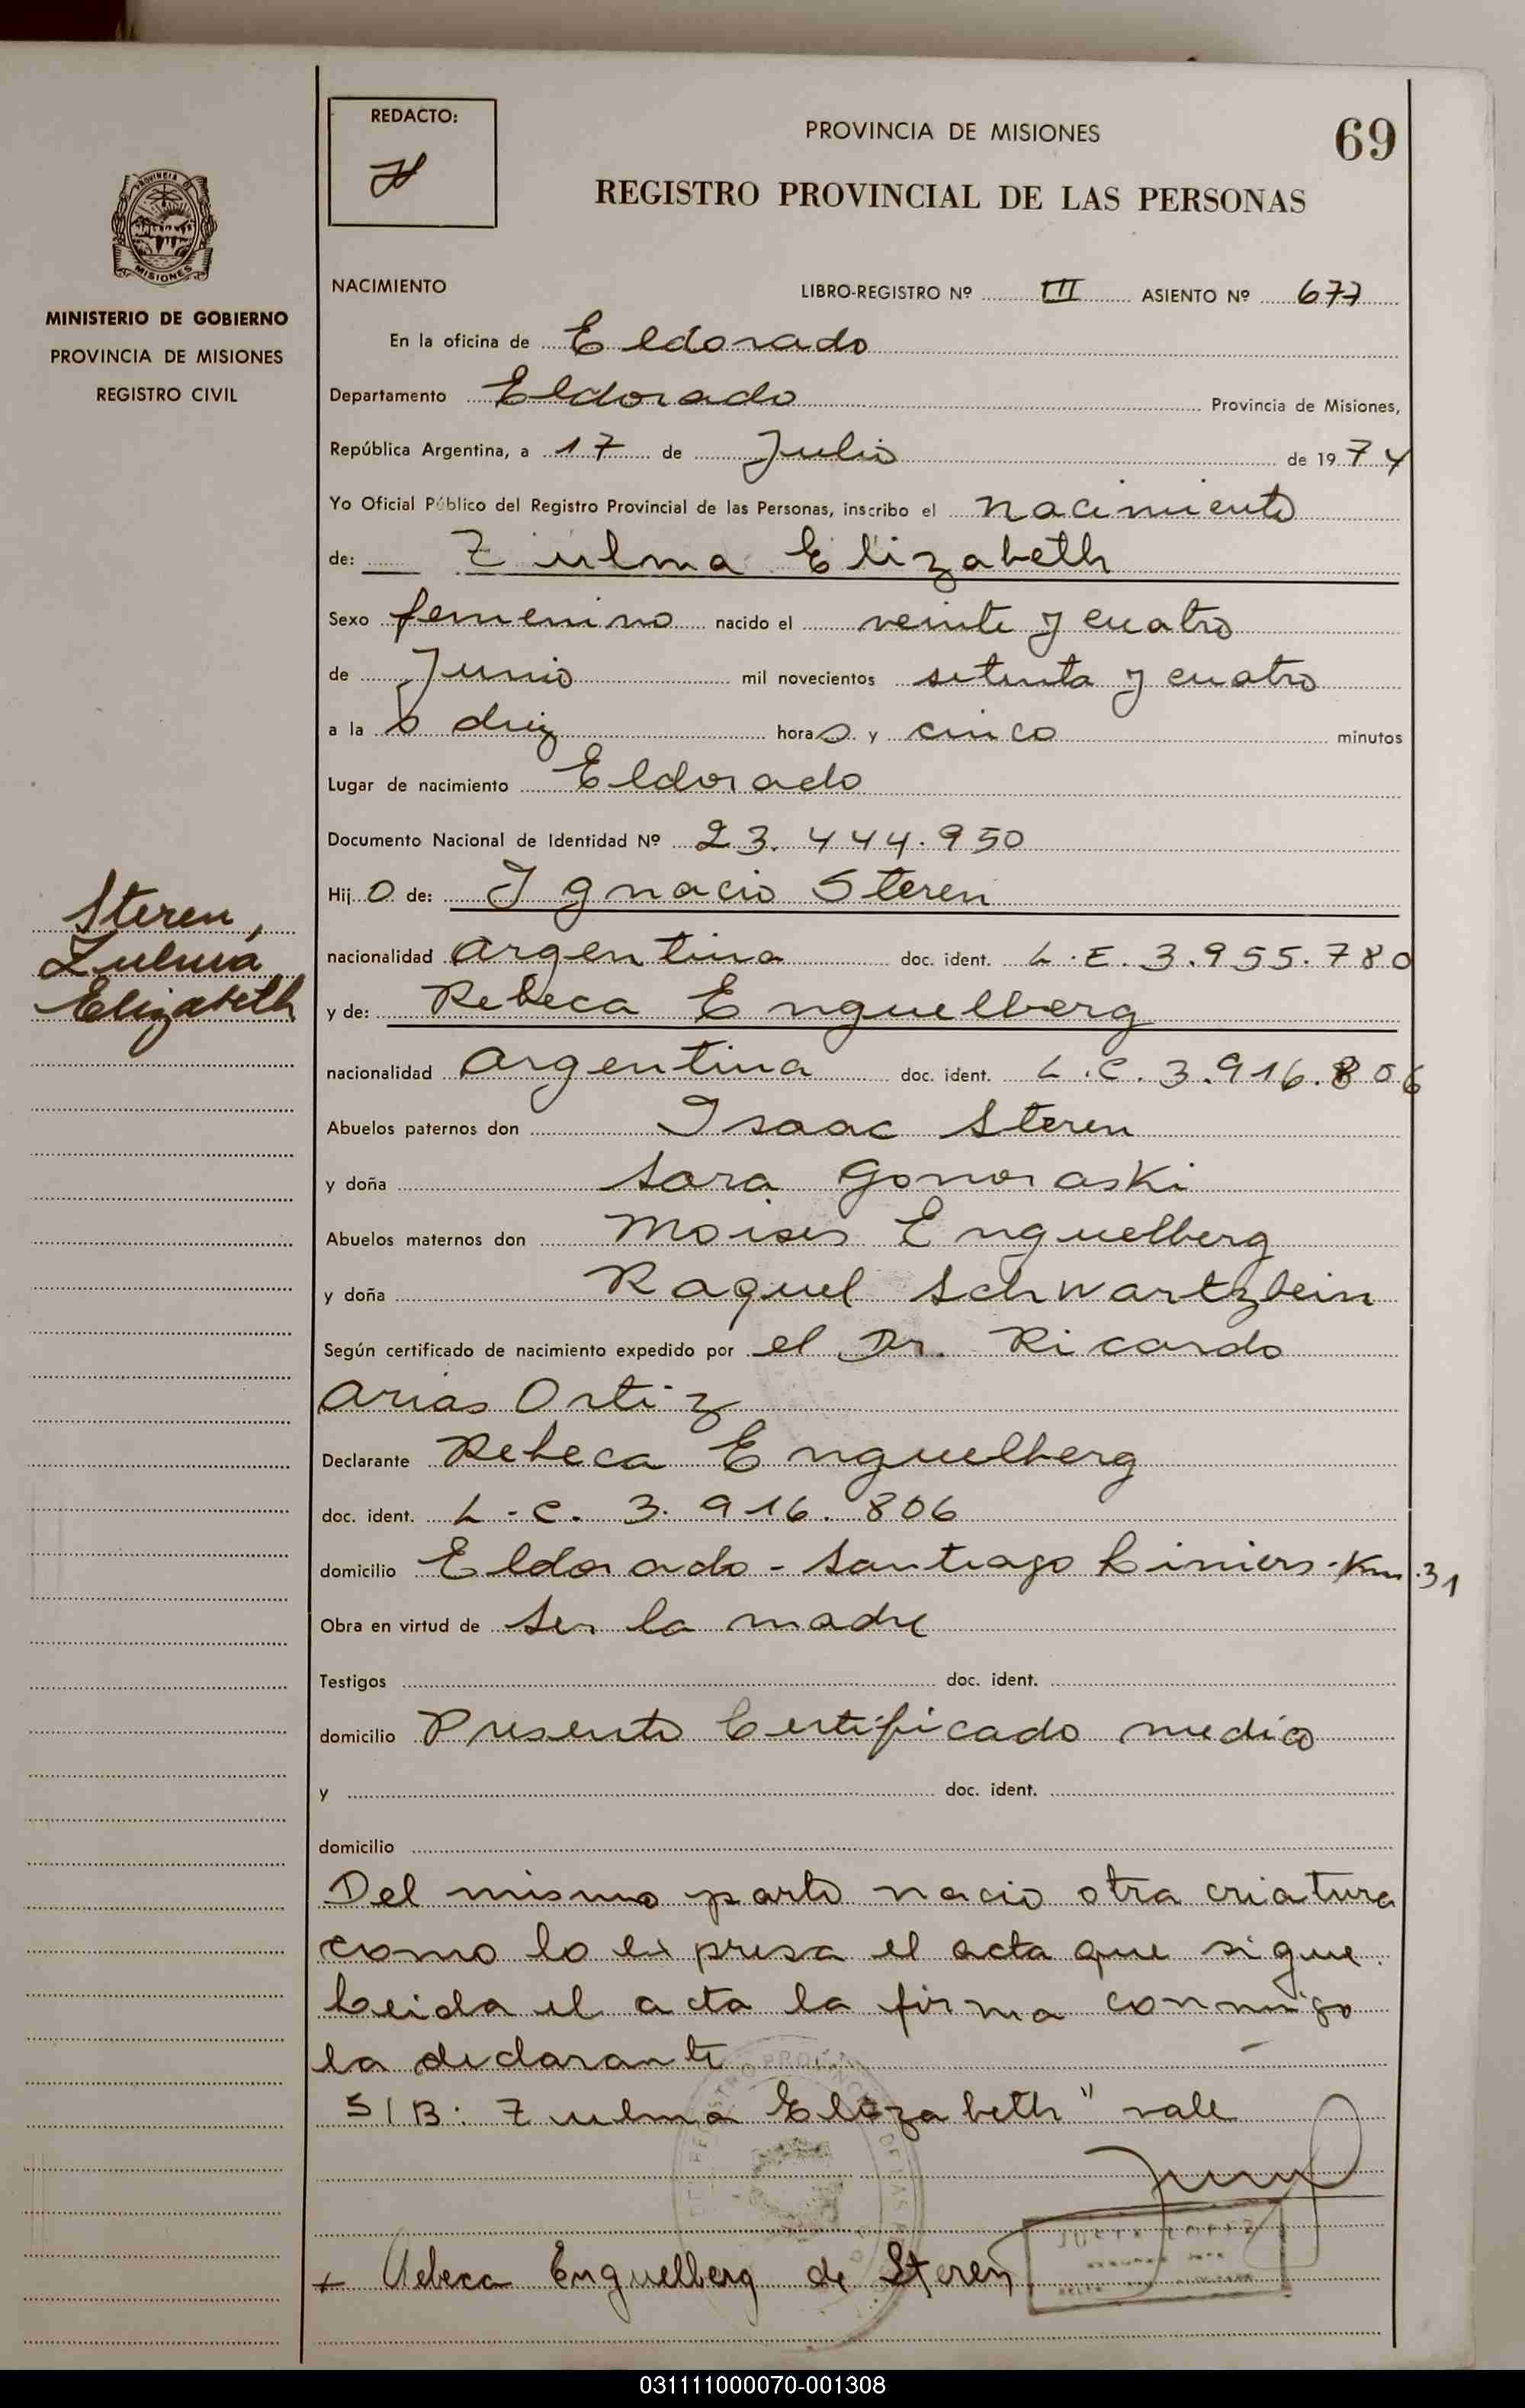 REDACTO:
PROVINCIA DE MISIONES
69
REGISTRO PROVINCIAL DE LAS PERSONAS
PROVINCIA DE
MISIONES
MINISTERIO DE GOBIERNO
PROVINCIA DE MISIONES
REGISTRO CIVIL
NACIMIENTO LIBRO-REGISTRO Nº III ASIENTO Nº 677
En la oficina de Eldorado
Departamento Eldorado Provincia de Misiones,
República Argentina, a 17 de Julio de 1974
Yo Oficial Público del Registro Provincial de las Personas, inscribo el nacimiento
de: Zulma Elizabeth
Sexo femenino nacido el veinte y cuatro
de Junio mil novecientos setenta y cuatro
a la s diez horas y cinco minutos
Lugar de nacimiento Eldorado
Documento Nacional de Identidad Nº 23.444.950
Hij o de: Ignacio Steren
Steren,
Zulma
Elizabeth
nacionalidad argentina doc. ident. L.E. 3.955.780
y de: Rebeca Enguelberg
nacionalidad argentina doc. ident. L.C. 3.916.806
Abuelos paternos don Isaac Steren
y doña Sara Gonoraski
Abuelos maternos don Moises Enguelberg
y doña Raquel Schwartzbein
Según certificado de nacimiento expedido por el Dr. Ricardo
Arias Ortiz
Declarante Rebeca Enguelberg
doc. ident. L.C. 3.916.806
domicilio Eldorado - Santiago Liniers - Km. 31
Obra en virtud de ser la madre
Testigos doc. ident.
domicilio Presento Certificado medico
y doc. ident.
domicilio
Del mismo parto nacio otra criatura
como lo expresa el acta que sigue.
Leida el acta la firma conmigo
la declarante
S/B: Zulma Elizabeth" vale
+ Rebeca Enguelberg de Steren
031111000070-001308